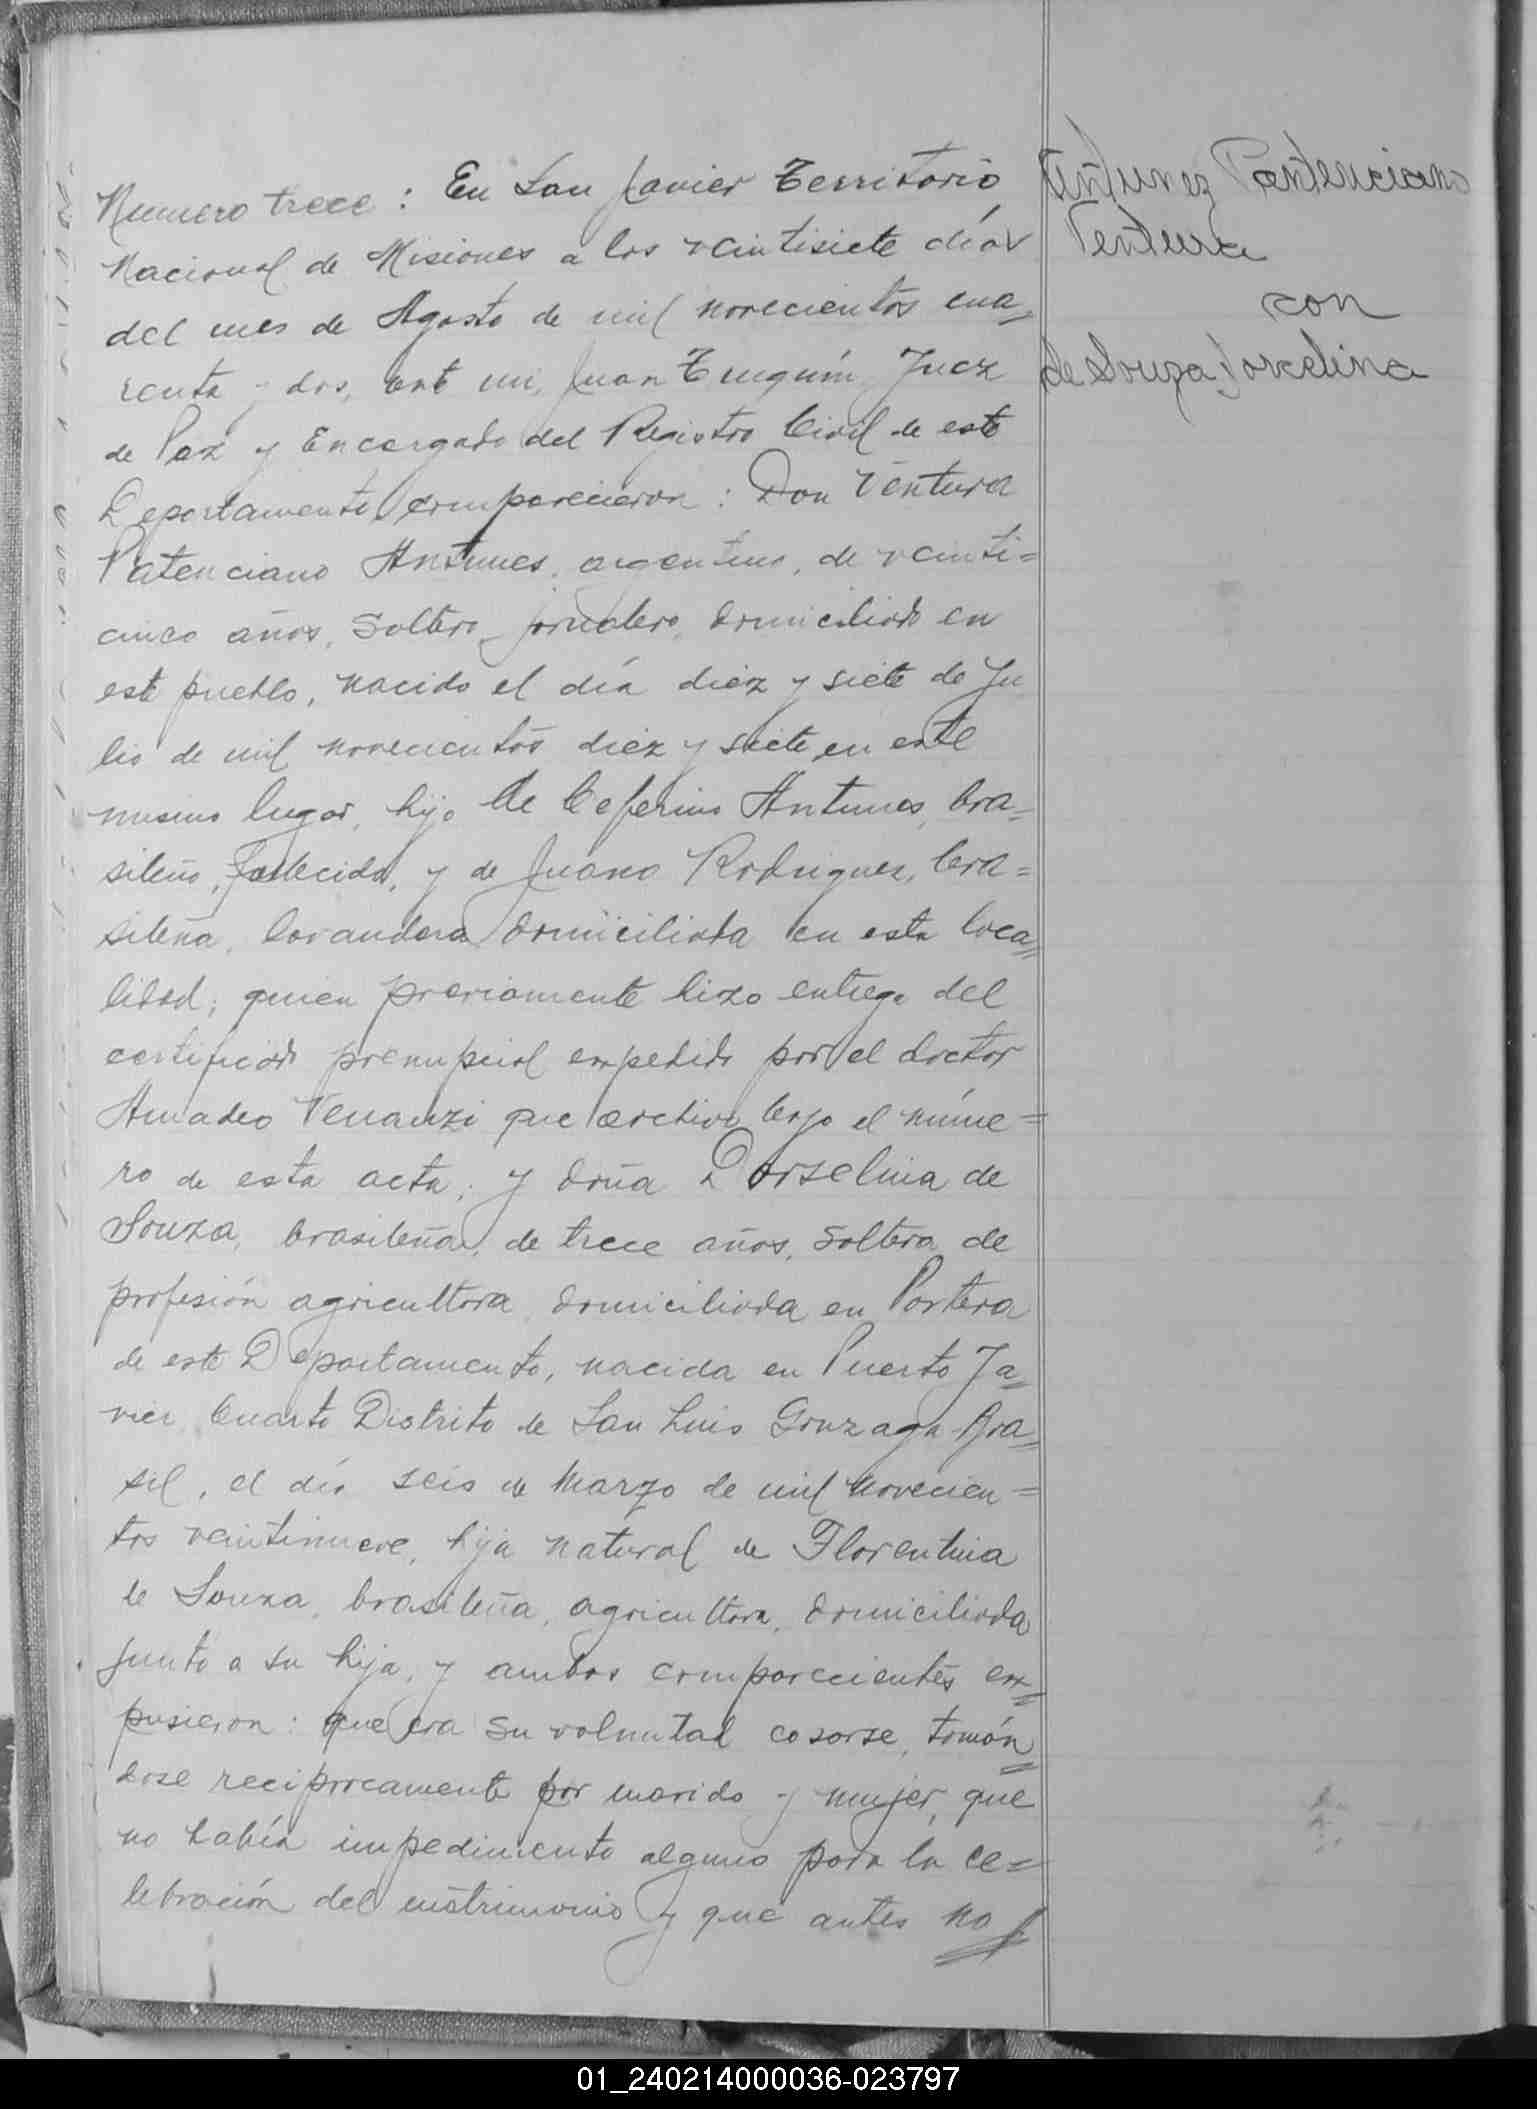 Numero trece: En San Javier Territorio
Nacional de Misiones a los veintisiete días
del mes de Agosto de mil novecientos cua=
renta y dos, ante mi, Juan Juez
de Paz y Encargado del Registro Civil de este
Departamento, comparecieron: Don Ventura
Patenciano Antunes, argentino, de veinti=
cinco años, soltero, jornalero, domiciliado en
este pueblo, nacido el día diez y siete de Ju
lio de mil novecientos diez y siete, en este
mismo lugar, hijo de Ceferino Antunes, bra=
sileño, fallecido, y de Juana Rodriguez, bra=
sileña, lavandera, domiciliada en esta loca=
lidad; quien previamente hizo entrega del
certificado prenupcial expedido por el doctor
Amadeo Venanzi que archivo bajo el núme=
ro de esta acta; y doña Dorselina de
Souza, brasileña, de trece años, soltera, de
profesión agricultora, domiciliada en Portera
de este Departamento, nacida en Puerto Ja=
vier Cuarto Distrito de San Luis Gonzaga Bra=
sil, el día seis de Marzo de mil novecien=
tos veintinueve, hija natural de Florentina
de Souza, brasileña, agricultora, domiciliada
junto a su hija, y ambos comparecientes ex=
pusieron: que era su voluntad casarse, tomán=
dose reciprocamente por marido y mujer, que
no había impedimento alguno para la ce=
lebración del matrimonio y que antes no
Antunez Pantenciano
Ventura
con
de Souza Jorcelina
01_240214000036-023797